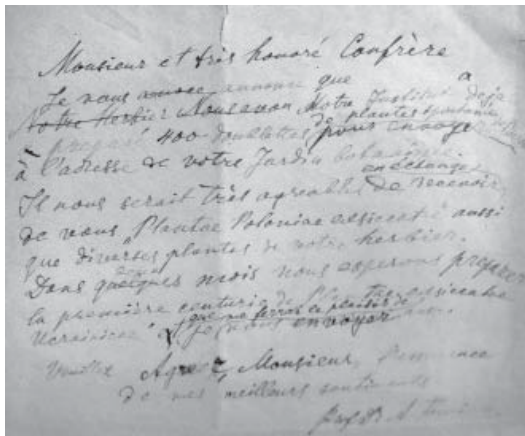 Monsieur et très honoré Confrère
Je vous annonce que
Notre Herbier Notre Institut a deja
preparé 400 doublettes de plantes spontanées pour envoyer
à l'adresse de votre Jardin botanique
en échange
Il nous serait très agréable de recevoir
de vous "Plantae Poloniae exsiccatae" aussi
que diverses plantes de votre herbier.
Dans quelques mois nous esperons preparer
la première centurie de exsiccatae
Ucrainicae" que me ferais le plaisir de
je vous envoyer
Veuillez Agreez, Monsieur,
de mes meilleurs sentiments
Prof. Dr